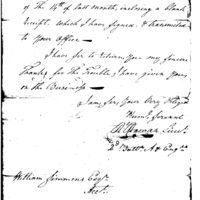 of the 14th of last month, inclosing a Blank
receipt, which I have signed & transmitted
to your office —
I have for to return you my sincere
Thanks for the Trouble I have given you
on the Business —
I am, Sir your Very Obliged
Humble Servant
Lieut.
2d Battn. A & Engrs
William Simmons Esqr.